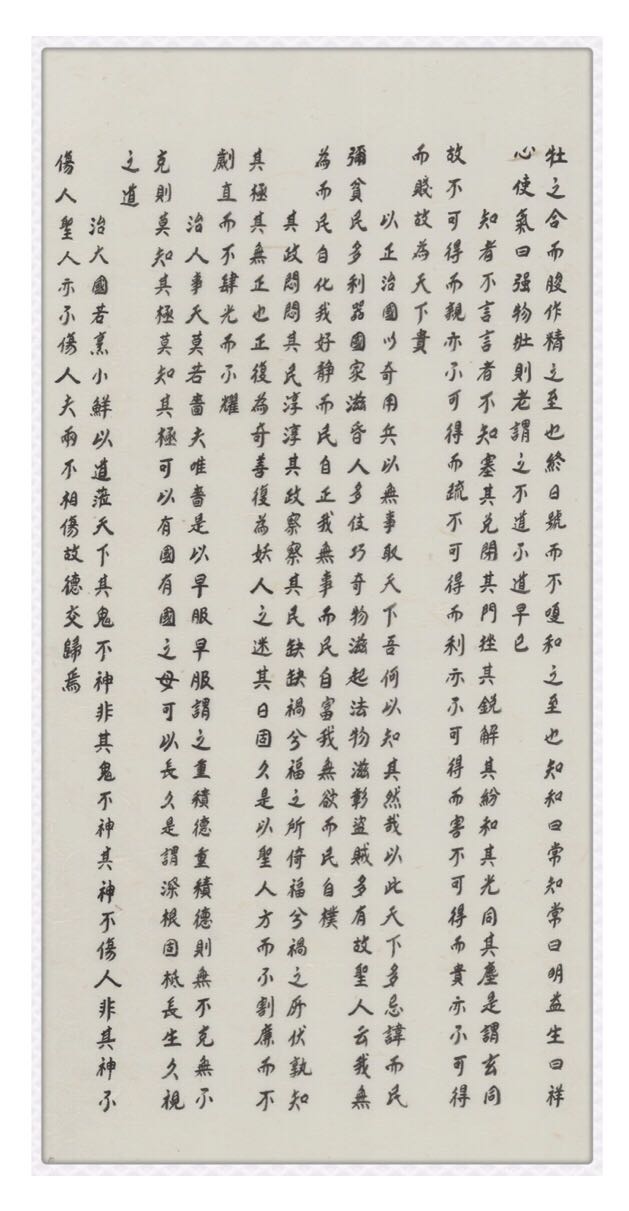 牡之合而朘作精之至也終日號而不嗄和之至也知和曰常知常曰明益生曰祥
心使氣曰强物壯則老謂之不道不道早已
知者不言言者不知塞其兌閉其門挫其銳解其紛和其光同其塵是謂玄同
故不可得而親亦不可得而疏不可得而利亦不可得而害不可得而貴亦不可得
而賤故為天下貴
以正治國以奇用兵以無事取天下吾何以知其然哉以此天下多忌諱而民
彌貧民多利器國家滋昏人多伎巧奇物滋起法物滋彰盜賊多有故聖人云我無
為而民自化我好静而民自正我無事而民自富我無欲而民自樸
其政悶悶其民淳淳其政察察其民缺缺禍兮福之所倚福兮禍之所伏孰知
其極其無正也正復為奇善復為妖人之迷其日固久是以聖人方而不割廉而不
劌直而不肆光而不耀
治人事天莫若嗇夫唯嗇是以早服早服謂之重積德重積德則無不克無不
克則莫知其極莫知其極可以有國有國之母可以長久是謂深根固柢長生久視
之道
治大國若烹小鮮以道蒞天下其鬼不神非其鬼不神其神不傷人非其神不
傷人聖人亦不傷人夫兩不相傷故德交歸焉